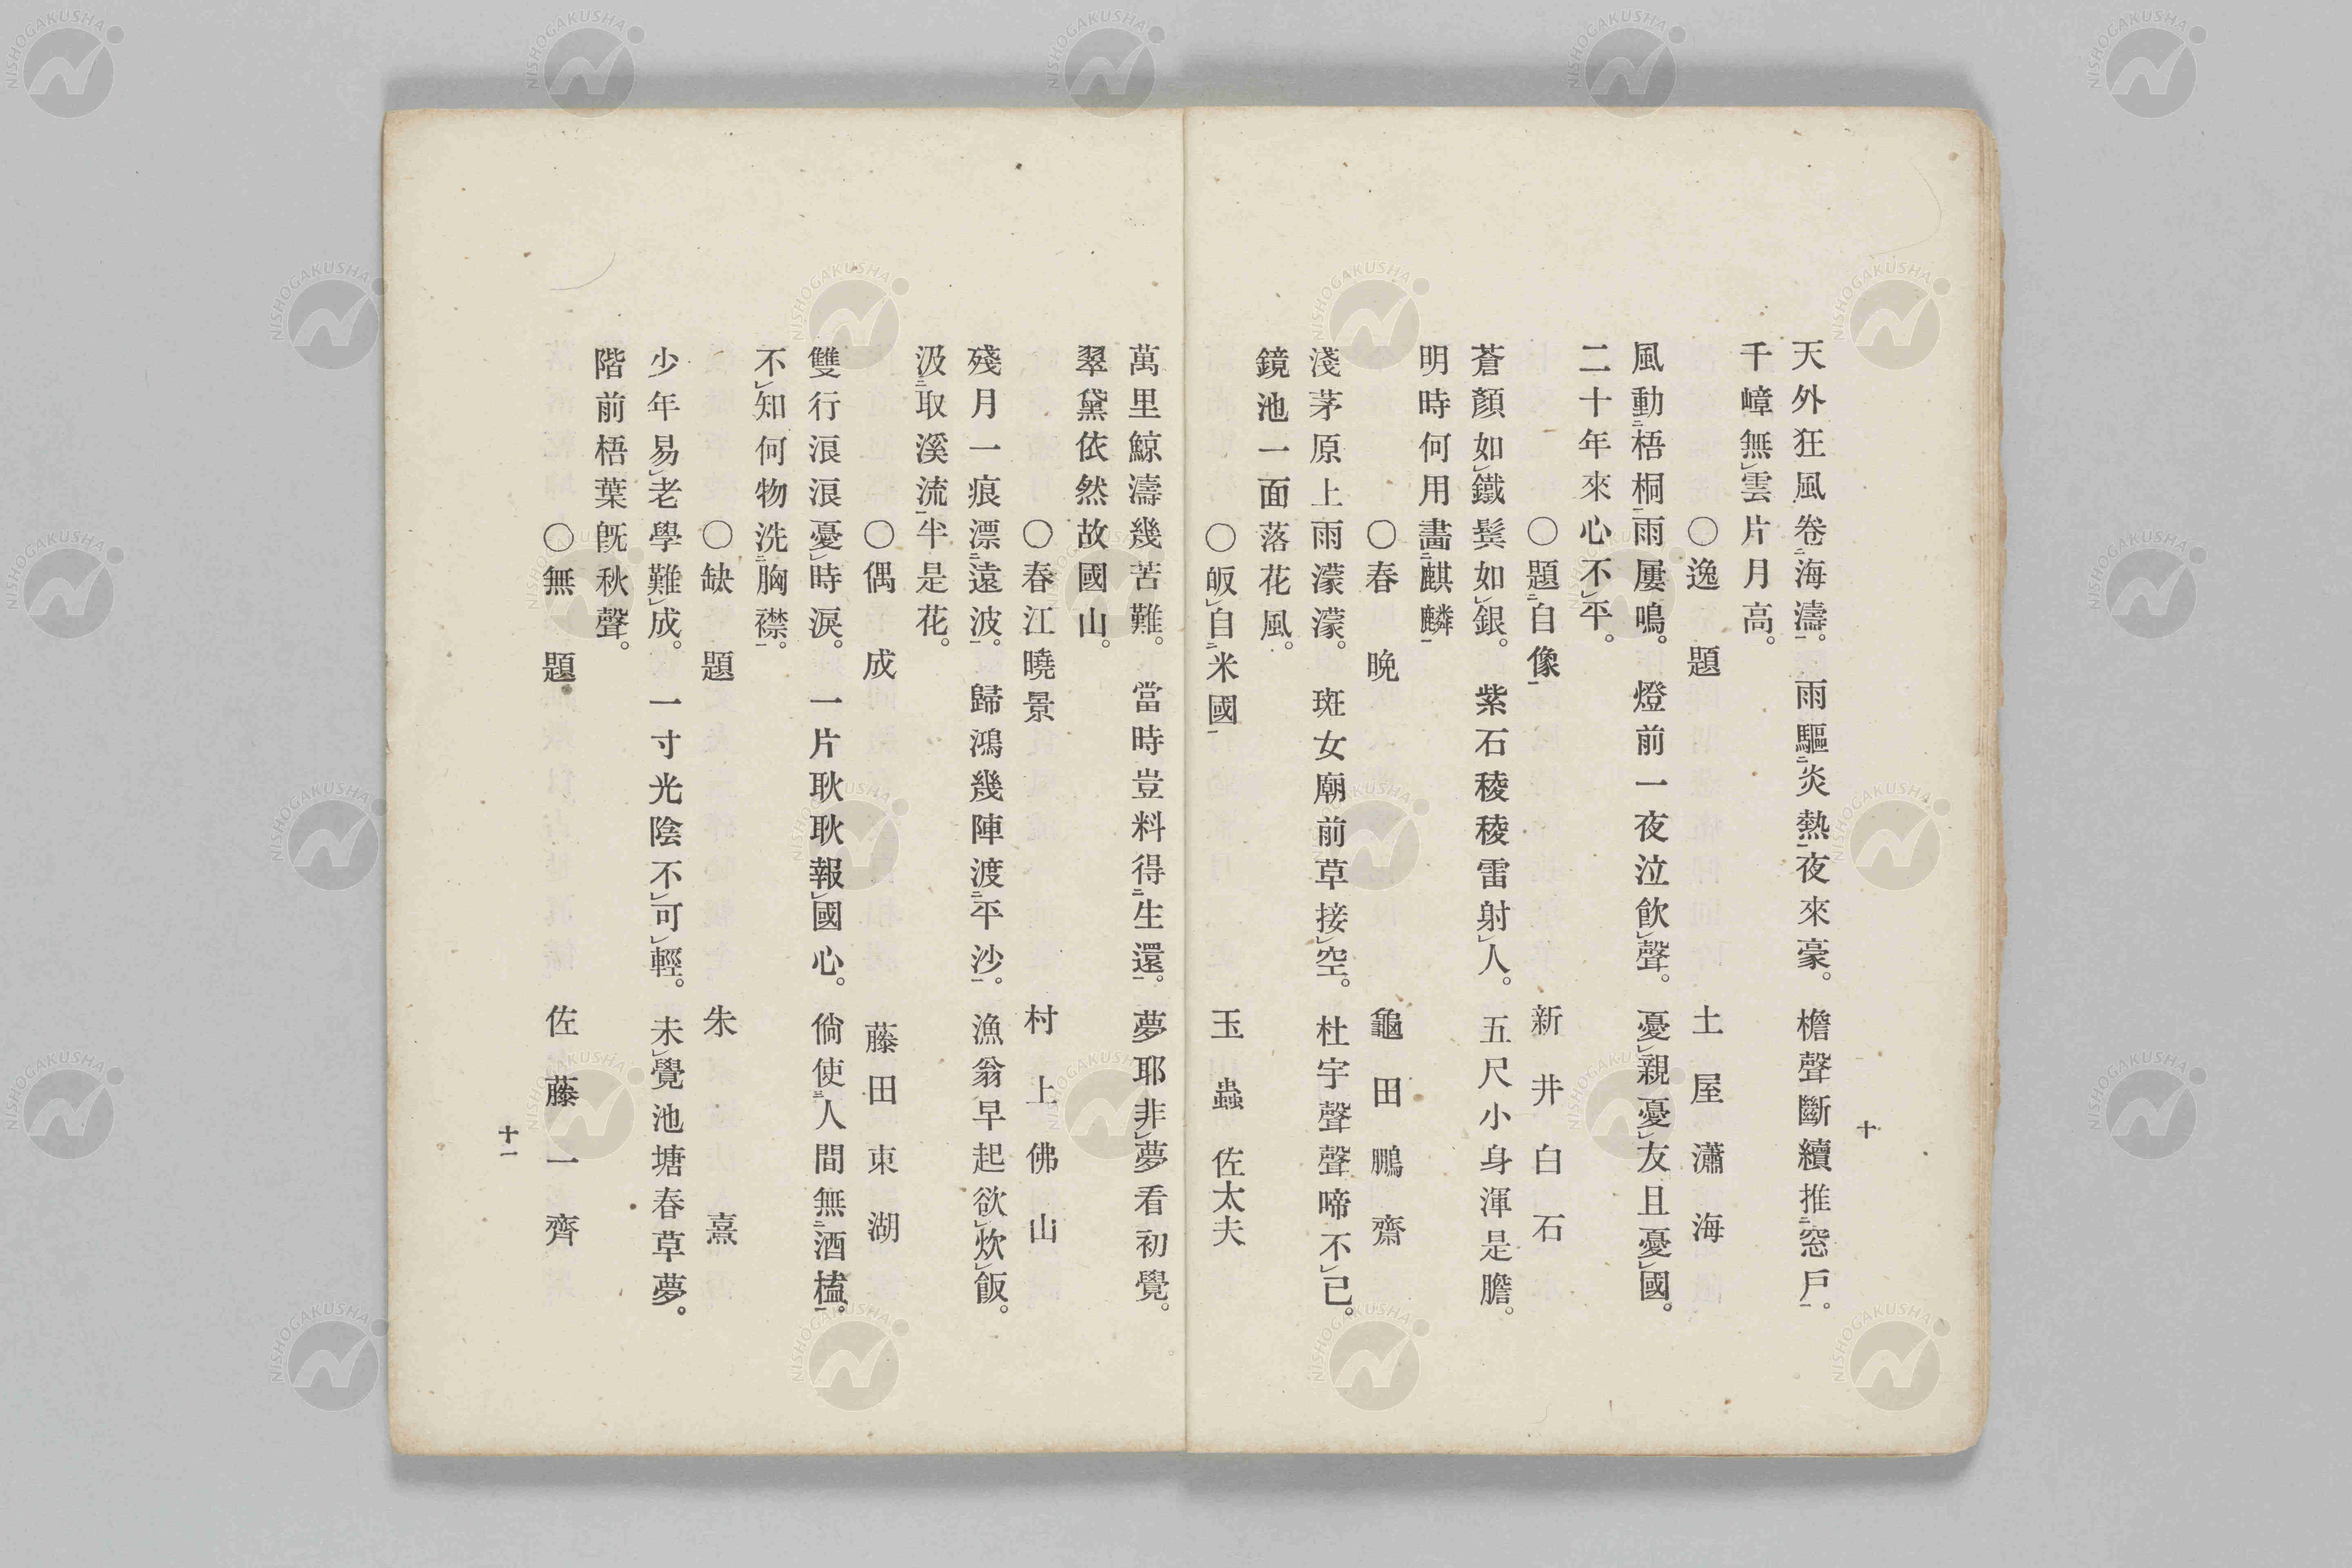 天外狂風卷㆓海濤㆒。雨驅㆓炎熱㆒夜來豪。檐聲斷續推㆓窓戶㆒。
千嶂無㆑雲片月高。
〇逸題 土屋瀟海
風動㆓梧桐㆒雨屢鳴。燈前一夜泣飮㆑聲。憂㆑親憂㆑友且憂㆑國。
二十年來心不㆑平。
〇題㆓自像㆒ 新井白石
蒼顏如㆑鐵鬂如㆑銀。紫石稜稜雷射㆑人。五尺小身渾是膽。
明時何用畵㆓麒麟㆒
〇春晩 龜田鵬齋
淺茅原上雨濛濛。斑女廟前草接㆑空。杜宇聲聲啼不㆑已。
鏡池一面落花風。
〇皈㆑自㆓米國㆒ 玉蟲佐太夫
十
萬里鯨濤幾苦難。當時豈料得㆓生還㆒。夢耶非㆑夢看初覺。
翠黛依然故國山。
〇春江曉景 村上佛山
殘月一痕漂㆓遠波㆒。歸鴻幾陣渡㆓平沙㆒。漁翁早起欲㆑炊㆑飯。
汲㆓取溪流㆒半是花。
〇偶成 藤田東湖
雙行淚淚憂㆑時淚。一片耿耿報㆑國心。倘使㆔人間無㆓酒榼㆒。
不㆑知何物洗㆓胸襟㆒。
〇缺題 朱熹
少年易㆑老學難㆑成。一寸光陰不㆑可㆑輕。未㆑覺池塘春草夢。
階前梧葉旣秋聲。
〇無題 佐藤一齊
十一
NISHOGAKUSHA